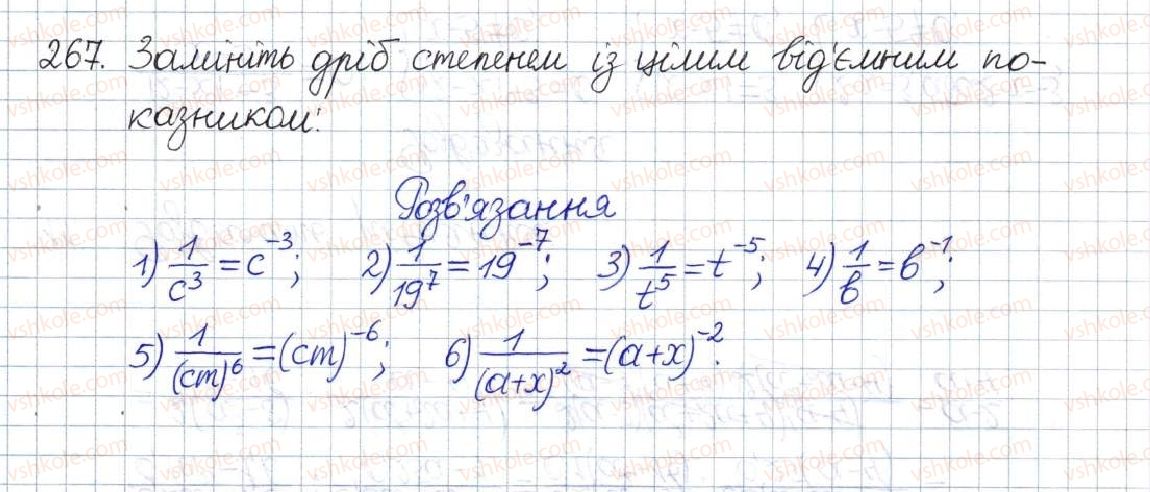 267. Замініть дріб степенем із цілим від'ємним по-
казником:
Розв'язання
1) 1/c³ = c⁻³; 2) 1/19⁷ = 19⁻⁷; 3) 1/t⁵ = t⁻⁵; 4) 1/b = b⁻¹;
5) 1/(cm)⁶ = (cm)⁻⁶; 6) 1/(a+x)² = (a+x)⁻².
vshkole.com